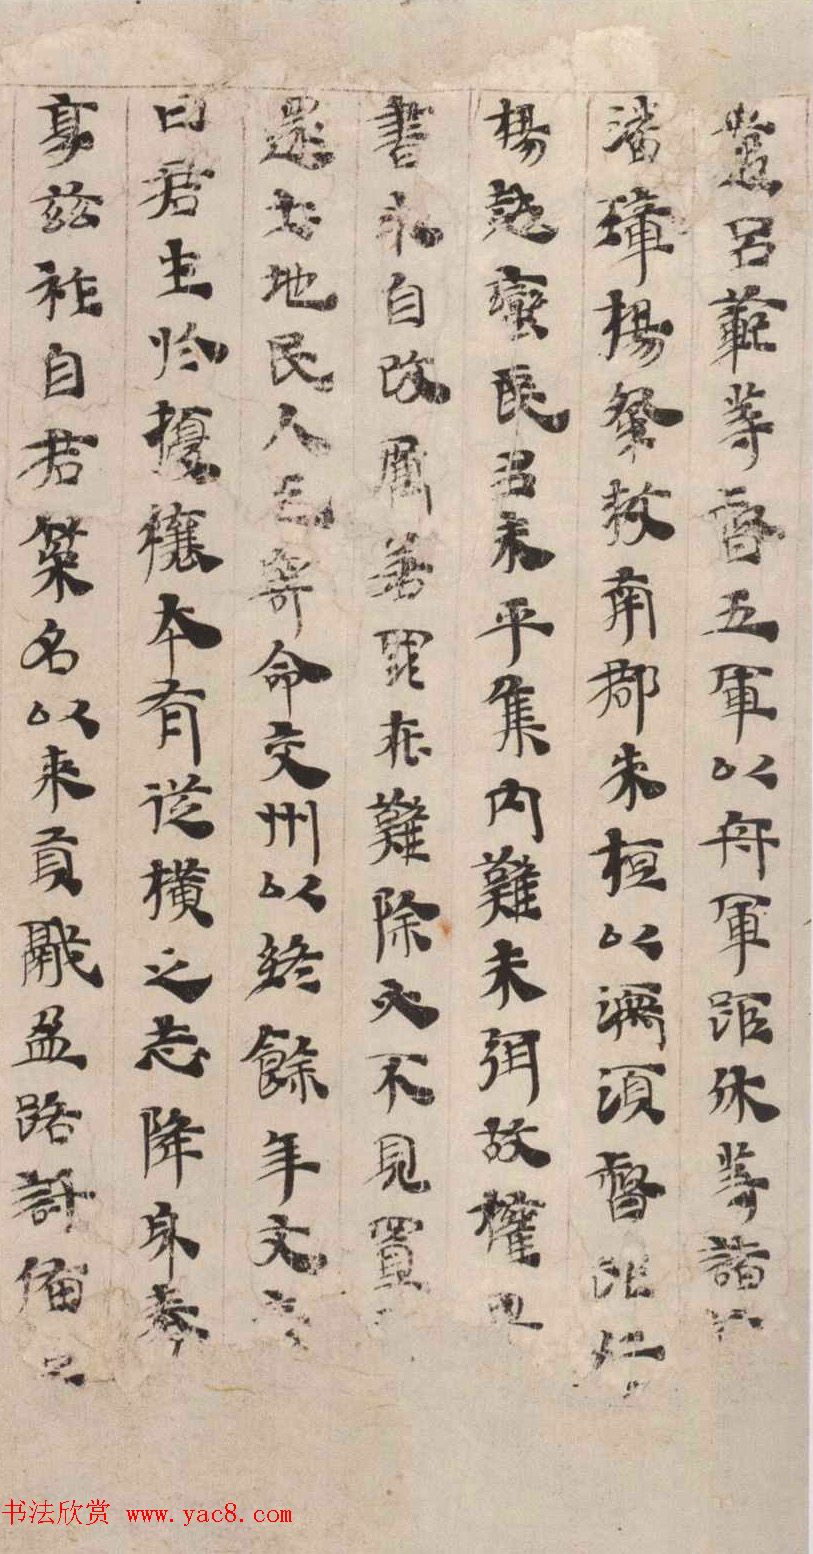 遣呂範等督五軍以舟軍距休等諸
潘璋楊粲救南郡朱桓以濡須督距仁
楊越蠻民未平集内難未弭故權
書求自改厲若罪在難除必不見置
還土地民人乞寄命交州以終餘年文
曰君生於擾攘本有從橫之志降身奉
享茲祚自君策名以来貢獻盈路討備之
书法欣赏 www.yac8.com